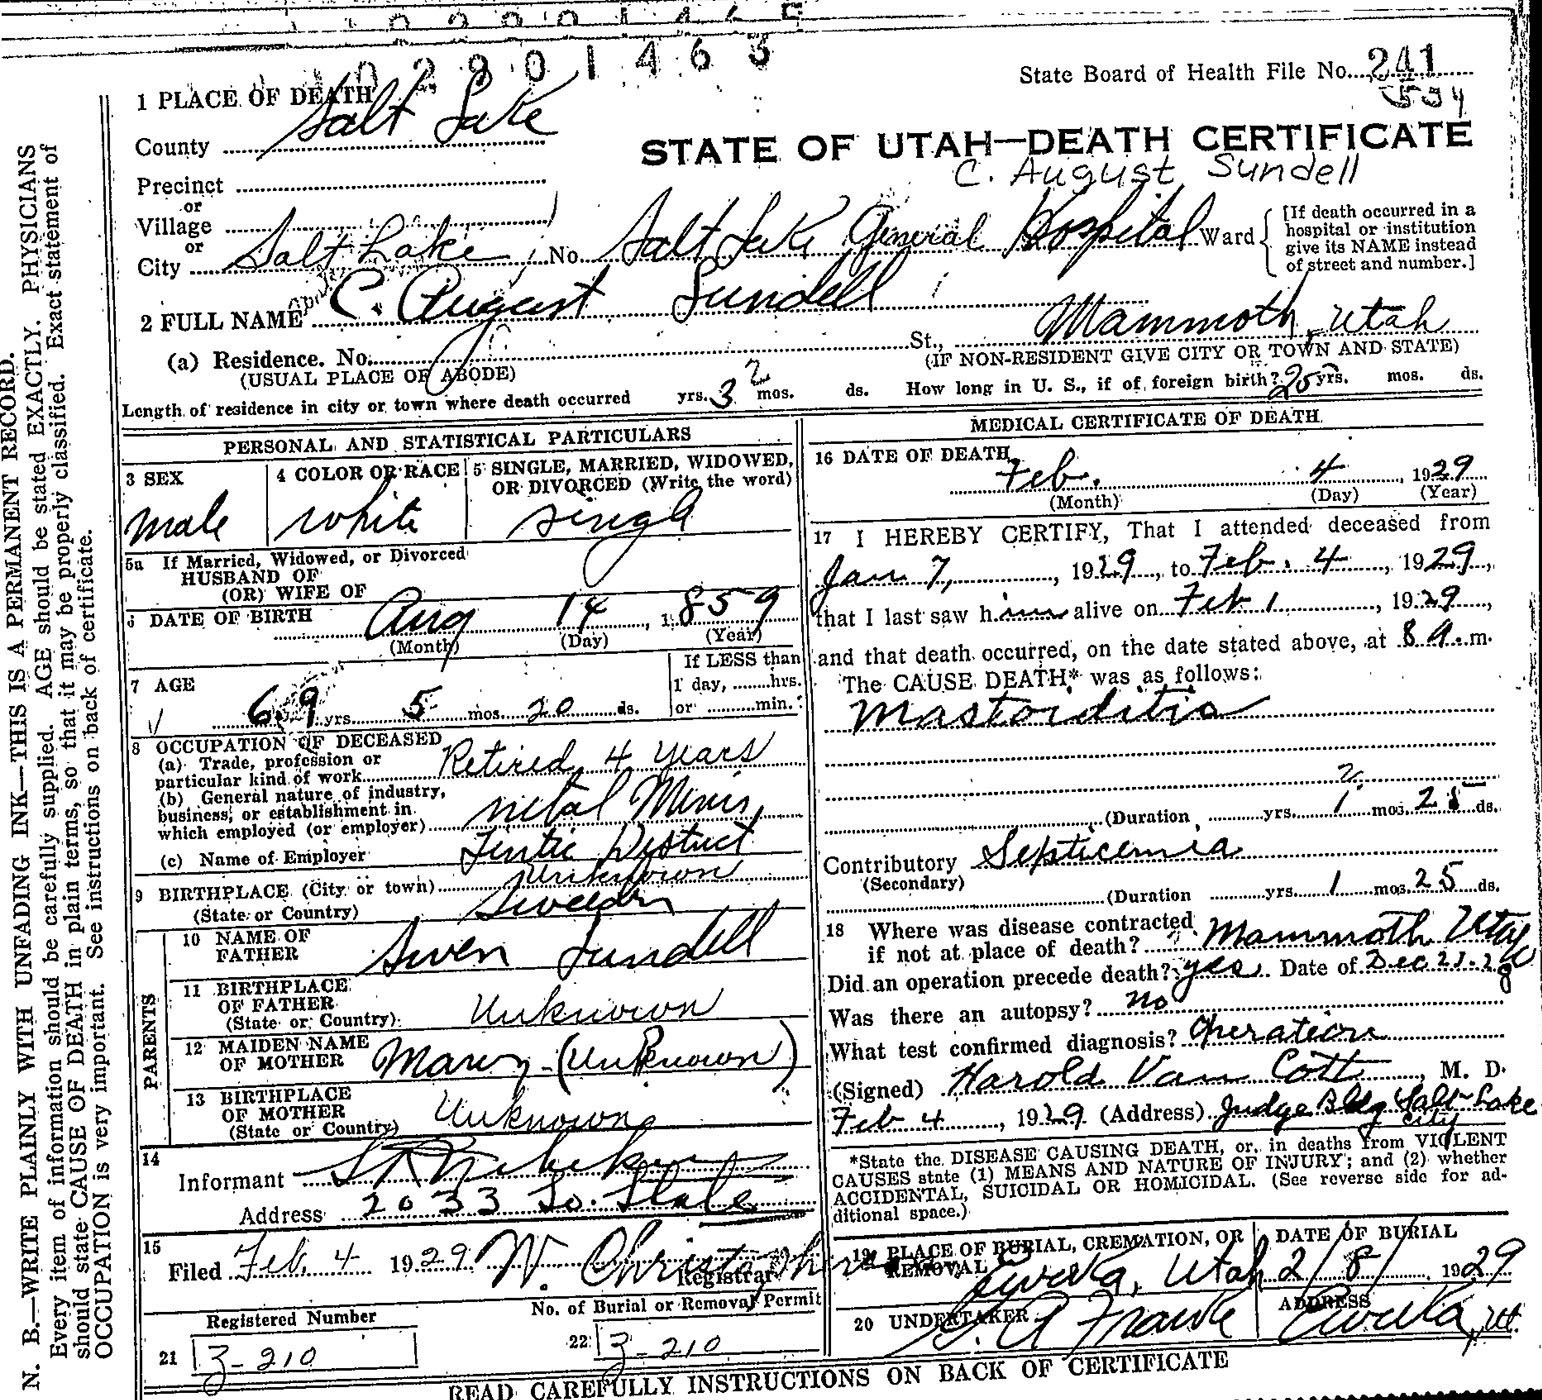 0 2 9 0 1 4 6 3
State Board of Health File No. 241
554
1 PLACE OF DEATH
County Salt Lake
STATE OF UTAH—DEATH CERTIFICATE
C. August Sundell
Precinct
or
Village
or
City Salt Lake No. Salt Lake General Hospital Ward
[If death occurred in a
hospital or institution
give its NAME instead
of street and number.]
2 FULL NAME C. August Sundell
(a) Residence. No. St., Mammoth, Utah
(USUAL PLACE OF ABODE) (IF NON-RESIDENT GIVE CITY OR TOWN AND STATE)
Length of residence in city or town where death occurred yrs. 3 2 mos. ds. How long in U. S., if of foreign birth? 25 yrs. mos. ds.
PERSONAL AND STATISTICAL PARTICULARS
3 SEX
male
4 COLOR OR RACE
white
5 SINGLE, MARRIED, WIDOWED,
OR DIVORCED (Write the word)
single
5a If Married, Widowed, or Divorced
HUSBAND OF
(OR) WIFE OF
6 DATE OF BIRTH Aug 14, 1859
(Month) (Day) (Year)
7 AGE
69 yrs. 5 mos. 20 ds.
If LESS than
1 day, hrs.
or min.
8 OCCUPATION OF DECEASED
(a) Trade, profession or
particular kind of work Retired 4 years
(b) General nature of industry,
business, or establishment in
which employed (or employer) Metal Mines
(c) Name of Employer Tintic District
9 BIRTHPLACE (City or town) Unknown
(State or Country) Sweden
PARENTS
10 NAME OF
FATHER Swen Sundell
11 BIRTHPLACE
OF FATHER
(State or Country) Unknown
12 MAIDEN NAME
OF MOTHER Mary (Unknown)
13 BIRTHPLACE
OF MOTHER
(State or Country) Unknown
14
Informant
Address 2033 So. State
15
Filed Feb. 4 1929 W. Christopherson
Registrar
Registered Number
21 3-210
No. of Burial or Removal Permit
22 3-210
MEDICAL CERTIFICATE OF DEATH
16 DATE OF DEATH
Feb. 4, 1929
(Month) (Day) (Year)
17 I HEREBY CERTIFY, That I attended deceased from
Jan 7, 1929, to Feb. 4, 1929,
that I last saw him alive on Feb 1, 1929,
and that death occurred, on the date stated above, at 8 A. m.
The CAUSE DEATH* was as follows:
Mastoiditis
2
(Duration yrs. 1 mos. 25 ds.
Contributory Septicemia
(Secondary)
(Duration yrs. 1 mos. 25 ds.
18 Where was disease contracted
if not at place of death? Mammoth Utah
Did an operation precede death? yes Date of Dec 21-28
Was there an autopsy? no
What test confirmed diagnosis? Operation
(Signed) Harold Van Cott, M. D.
Feb 4, 1929 (Address) Judge Bldg Salt Lake
City
*State the DISEASE CAUSING DEATH, or, in deaths from VIOLENT
CAUSES state (1) MEANS AND NATURE OF INJURY; and (2) whether
ACCIDENTAL, SUICIDAL OR HOMICIDAL. (See reverse side for ad-
ditional space.)
19 PLACE OF BURIAL, CREMATION, OR
REMOVAL Eureka, Utah
DATE OF BURIAL
2/8/ 1929
20 UNDERTAKER
ADDRESS
Eureka, Ut.
READ CAREFULLY INSTRUCTIONS ON BACK OF CERTIFICATE
N. B.—WRITE PLAINLY WITH UNFADING INK—THIS IS A PERMANENT RECORD.
Every item of information should be carefully supplied. AGE should be stated EXACTLY. PHYSICIANS
should state CAUSE OF DEATH in plain terms, so that it may be properly classified. Exact statement of
OCCUPATION is very important. See instructions on back of certificate.